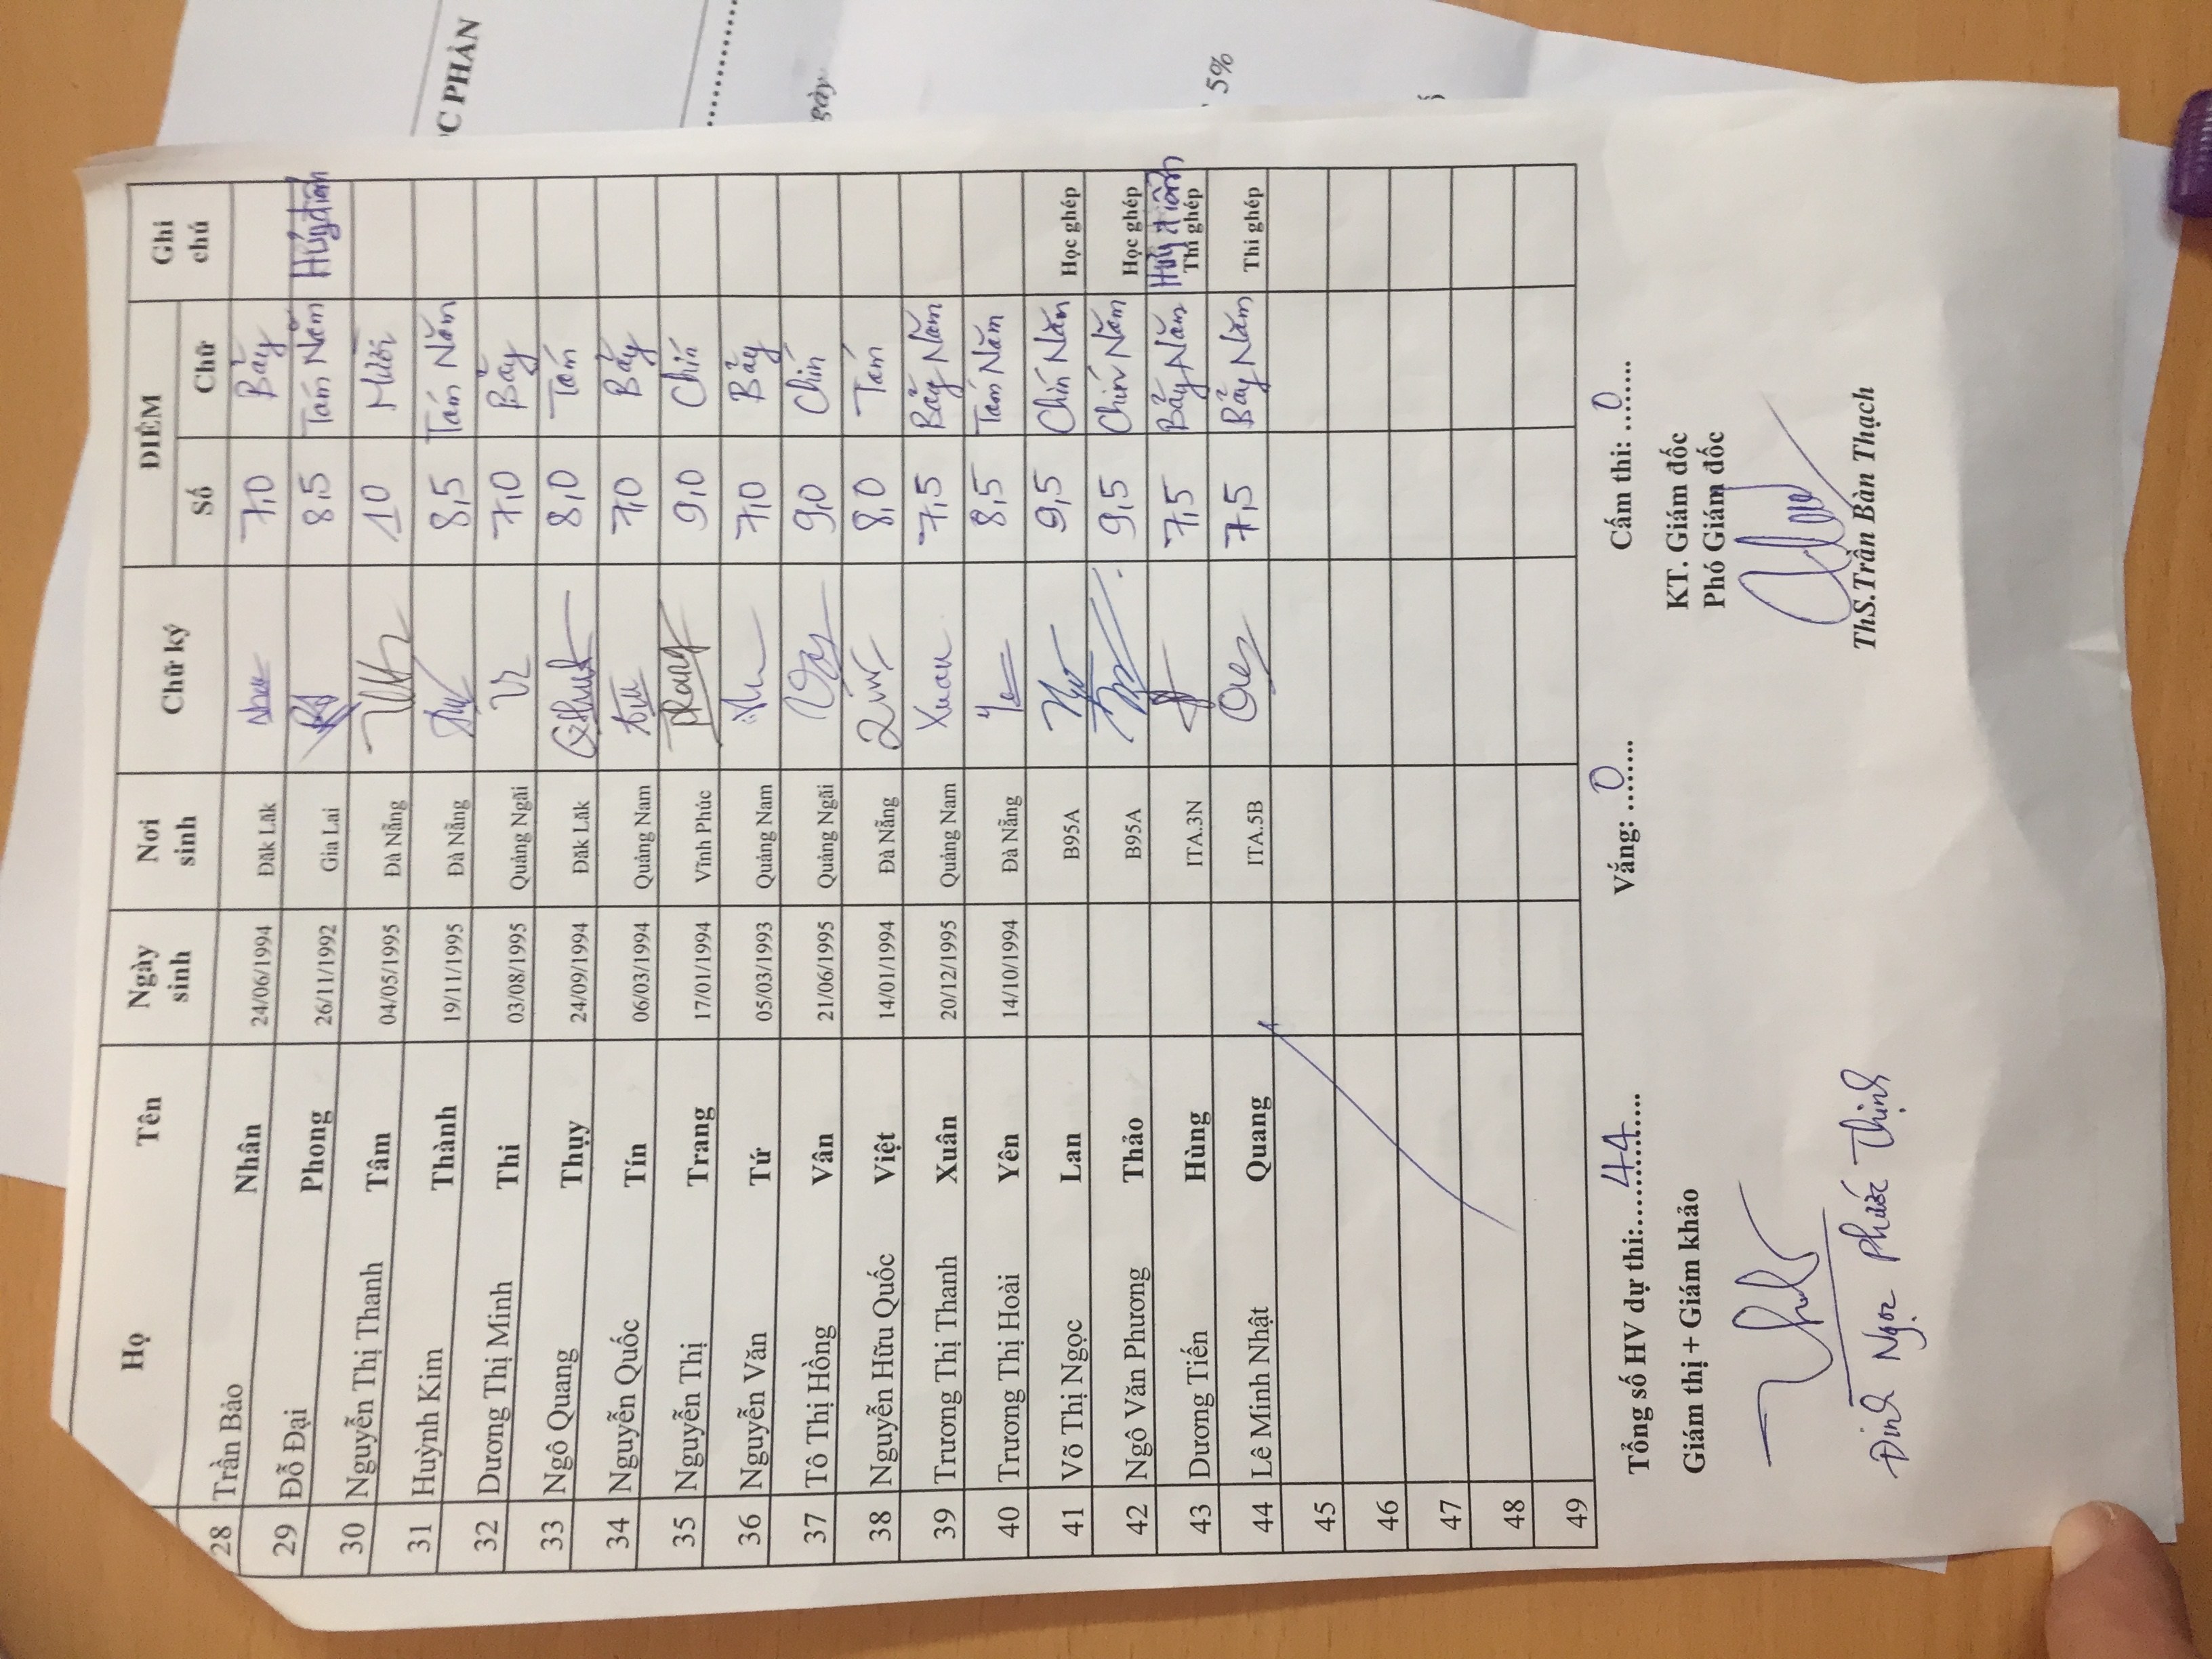 ỌC PHẦN
5%
Họ Tên Ngày sinh Nơi sinh Chữ ký ĐIỂM Ghi chú
Số Chữ
28 Trần Bảo Nhân 24/06/1994 Đăk Lăk 7,0 Bảy
29 Đỗ Đại Phong 26/11/1992 Gia Lai 8,5 Tám Năm Hủy điểm
30 Nguyễn Thị Thanh Tâm 04/05/1995 Đà Nẵng 10 Mười
31 Huỳnh Kim Thành 19/11/1995 Đà Nẵng 8,5 Tám Năm
32 Dương Thị Minh Thi 03/08/1995 Quảng Ngãi 7,0 Bảy
33 Ngô Quang Thụy 24/09/1994 Đăk Lăk 8,0 Tám
34 Nguyễn Quốc Tín 06/03/1994 Quảng Nam 7,0 Bảy
35 Nguyễn Thị Trang 17/01/1994 Vĩnh Phúc 9,0 Chín
36 Nguyễn Văn Tứ 05/03/1993 Quảng Nam 7,0 Bảy
37 Tô Thị Hồng Vân 21/06/1995 Quảng Ngãi 9,0 Chín
38 Nguyễn Hữu Quốc Việt 14/01/1994 Đà Nẵng 8,0 Tám
39 Trương Thị Thanh Xuân 20/12/1995 Quảng Nam Xuan 7,5 Bảy Năm
40 Trương Thị Hoài Yên 14/10/1994 Đà Nẵng 8,5 Tám Năm
41 Võ Thị Ngọc Lan B95A 9,5 Chín Năm Học ghép
42 Ngô Văn Phương Thảo B95A 9,5 Chín Năm Học ghép
43 Dương Tiến Hùng ITA.3N 7,5 Bảy Năm Hủy điểm Thi ghép
44 Lê Minh Nhật Quang ITA.5B 7,5 Bảy Năm Thi ghép
45
46
47
48
49
Tổng số HV dự thi:.....44..... Vắng: ..0..... Cấm thi: ..0.....
Giám thị + Giám khảo KT. Giám đốc
Phó Giám đốc
Đinh Ngọc Phước Thịnh ThS.Trần Bàn Thạch